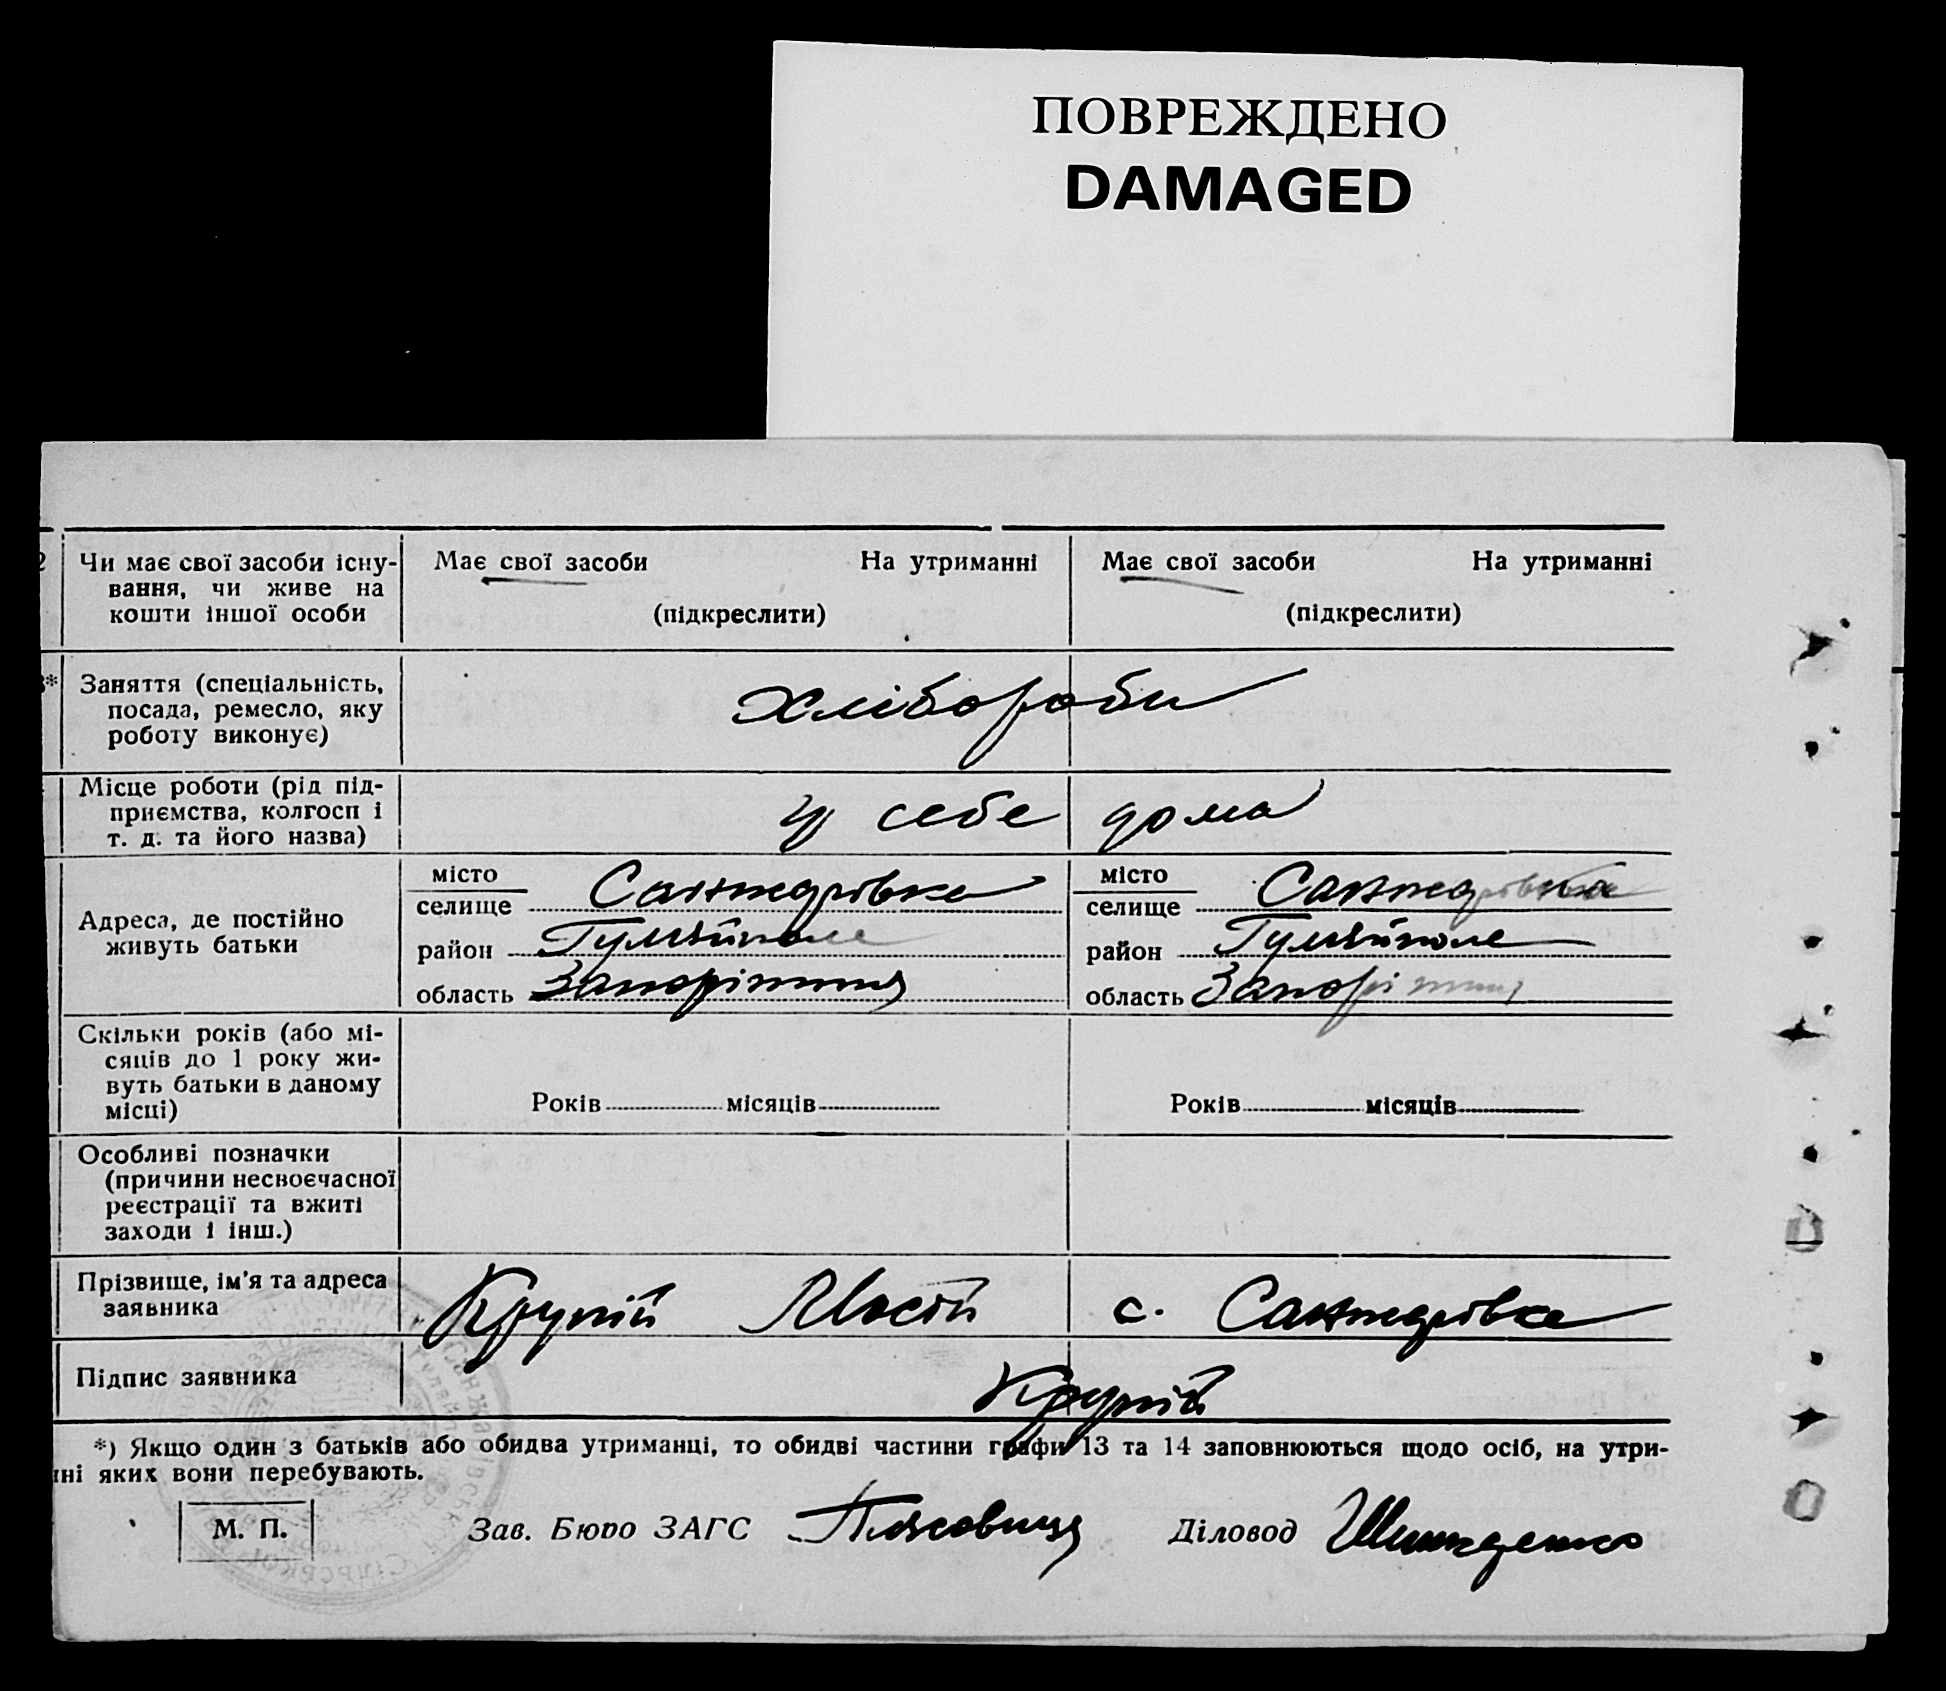 ПОВРЕЖДЕНО
DAMAGED
Чи має свої засоби існу-
вання, чи живе на
кошти іншої особи
Має свої засоби На утриманні
(підкреслити)
Має свої засоби На утриманні
(підкреслити)
Заняття (спеціальність,
посада, ремесло, яку
роботу виконує)
хлібороби
Місце роботи (рід під-
приємства, колгосп і
т. д. та його назва)
у себе дома
Адреса, де постійно
живуть батьки
місто
селище Санжарівка
район Гуляйполе
область Запоріжжя
місто
селище Санжарівка
район Гуляйполе
область Запоріжжя
Скільки років (або мі-
сяців до 1 року жи-
вуть батьки в даному
місці)
Років місяців
Років місяців
Особливі позначки
(причини несвоєчасної
реєстрації та вжиті
заходи і інш.)
Прізвище, ім'я та адреса
заявника
Крупій Мосій с. Санжарівка
Підпис заявника
Крупій
*) Якщо один з батьків або обидва утриманці, то обидві частини графи 13 та 14 заповнюються щодо осіб, на утри-
нні яких вони перебувають.
М. П.
Зав. Бюро ЗАГС
Діловод